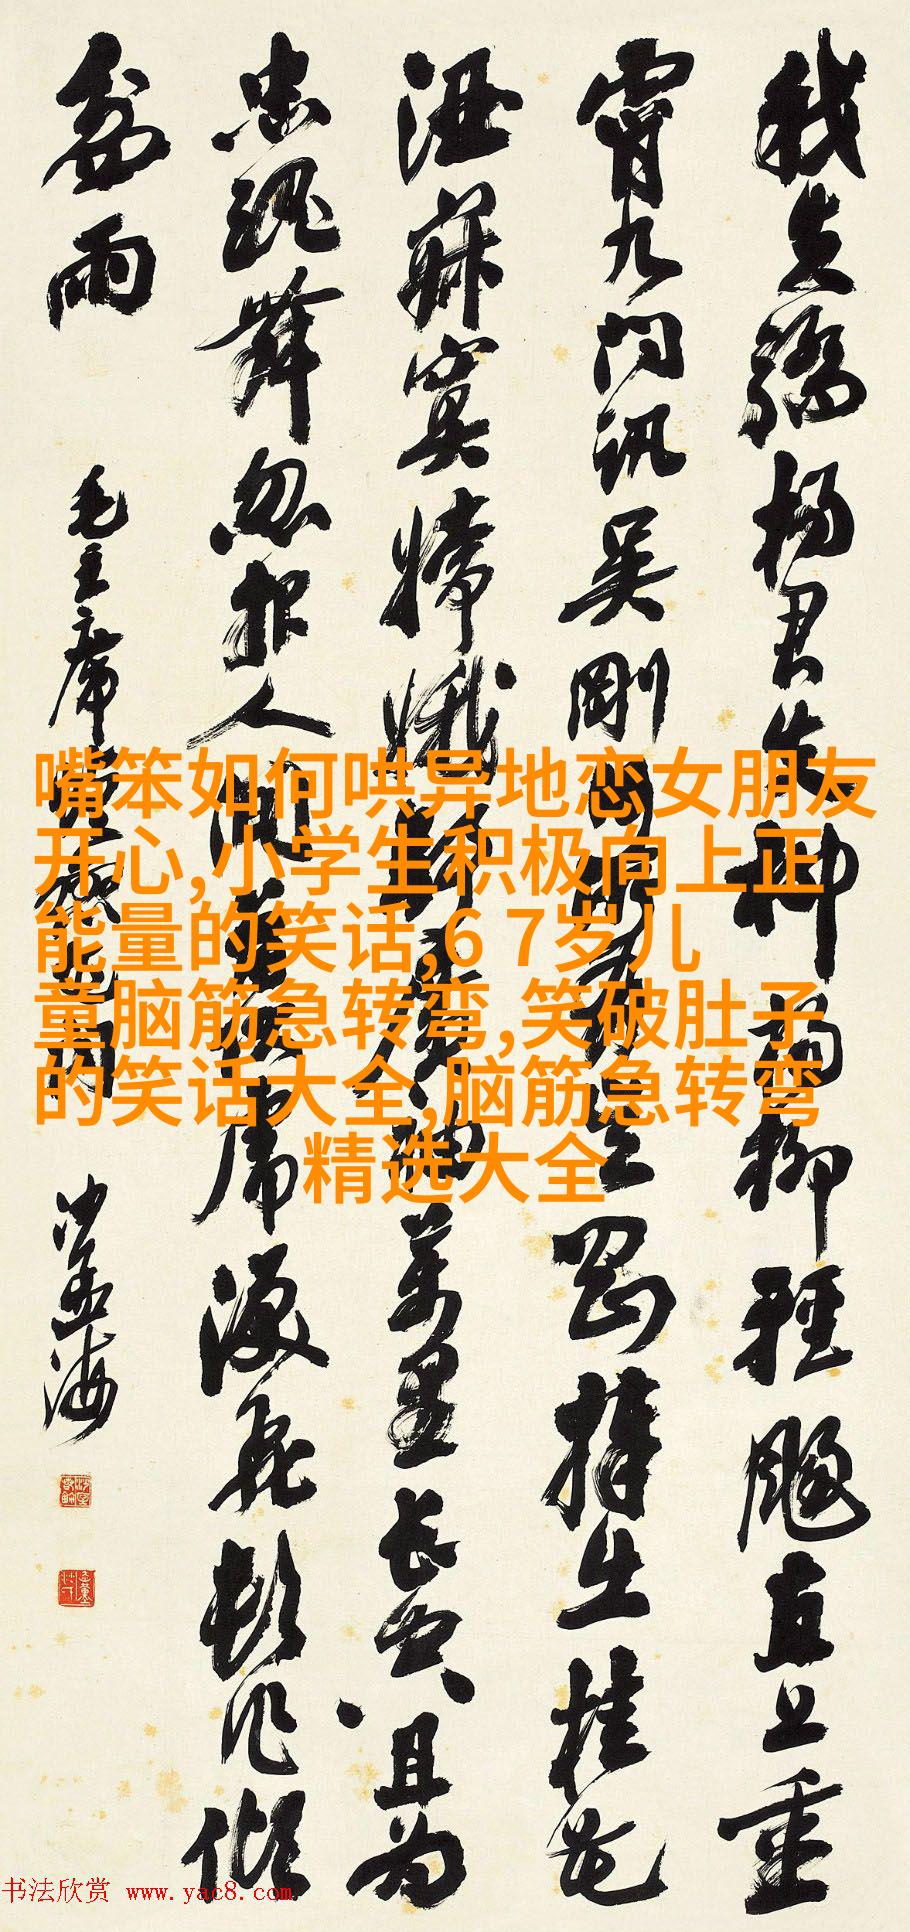 我失骄杨君失柳杨柳轻飏直上重
霄九问讯吴刚何所有吴刚捧出桂花
酒寂寞嫦娥舒广袖万里长空且为
忠魂舞忽报人间曾伏虎泪飞顿作倾
盆雨
毛主席蝶恋花词
沙孟海
嘴笨如何哄异地恋女朋友
开心,小学生积极向上正
能量的笑话,6 7岁儿
童脑筋急转弯,笑破肚子
的笑话大全,脑筋急转弯
精选大全
书法欣赏 www.yac8.com